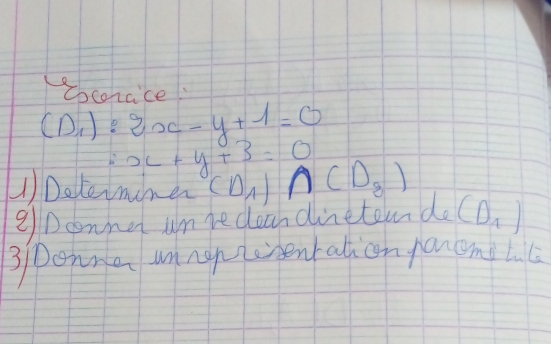 Exercice :
(D₁) : 2x - y + 1 = 0
: x + y + 3 = 0
1) Determiner (D₁) ∩ (D₂)
2) Donner un vecteur direteur de (D₁)
3) Donner un représentation